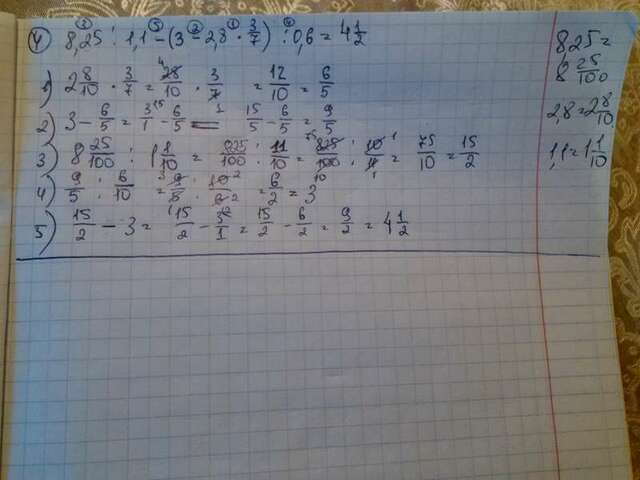 4) 8,25 : 1,1 - (3 - 2,8 · 3/7) : 0,6 = 4 1/2
1) 2 8/10 · 3/7 = 28/10 · 3/7 = 12/10 = 6/5
2) 3 - 6/5 = 3/1 - 6/5 = 15/5 - 6/5 = 9/5
3) 8 25/100 : 1 1/10 = 825/100 : 11/10 = 825/100 : 10/11 = 75/10 = 15/2
4) 9/5 : 6/10 = 9/5 · 10/6 = 6/2 = 3
5) 15/2 - 3 = 15/2 - 3/1 = 15/2 - 6/2 = 9/2 = 4 1/2
8,25 =
8 25/100
2,8 = 2 8/10
1,1 = 1 1/10